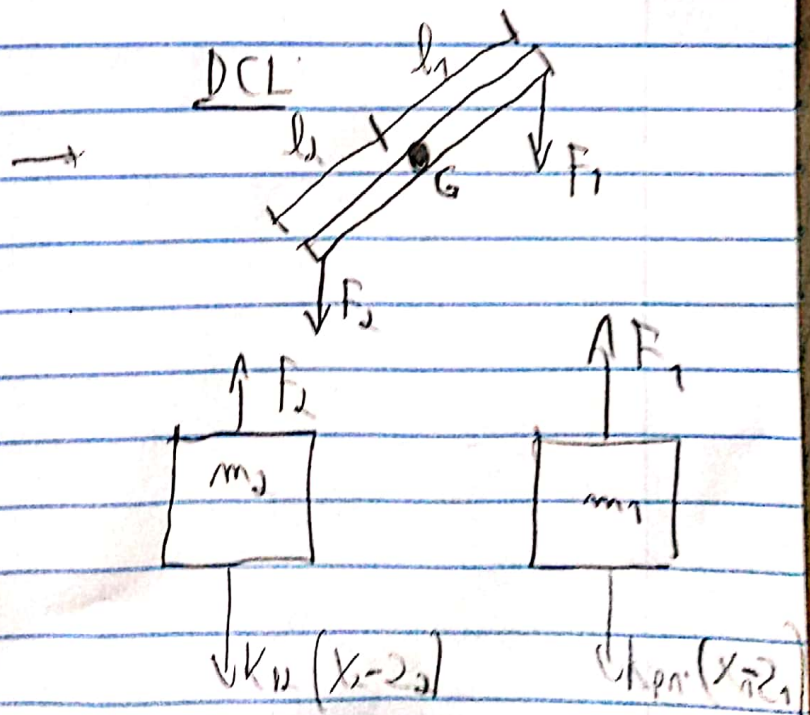 DCL
l₁
l₂
G
F₁
F₂
F₂
F₁
m₂
m₁
K_p2 (X₂-Z₂)
K_p1 (X₁-Z₁)